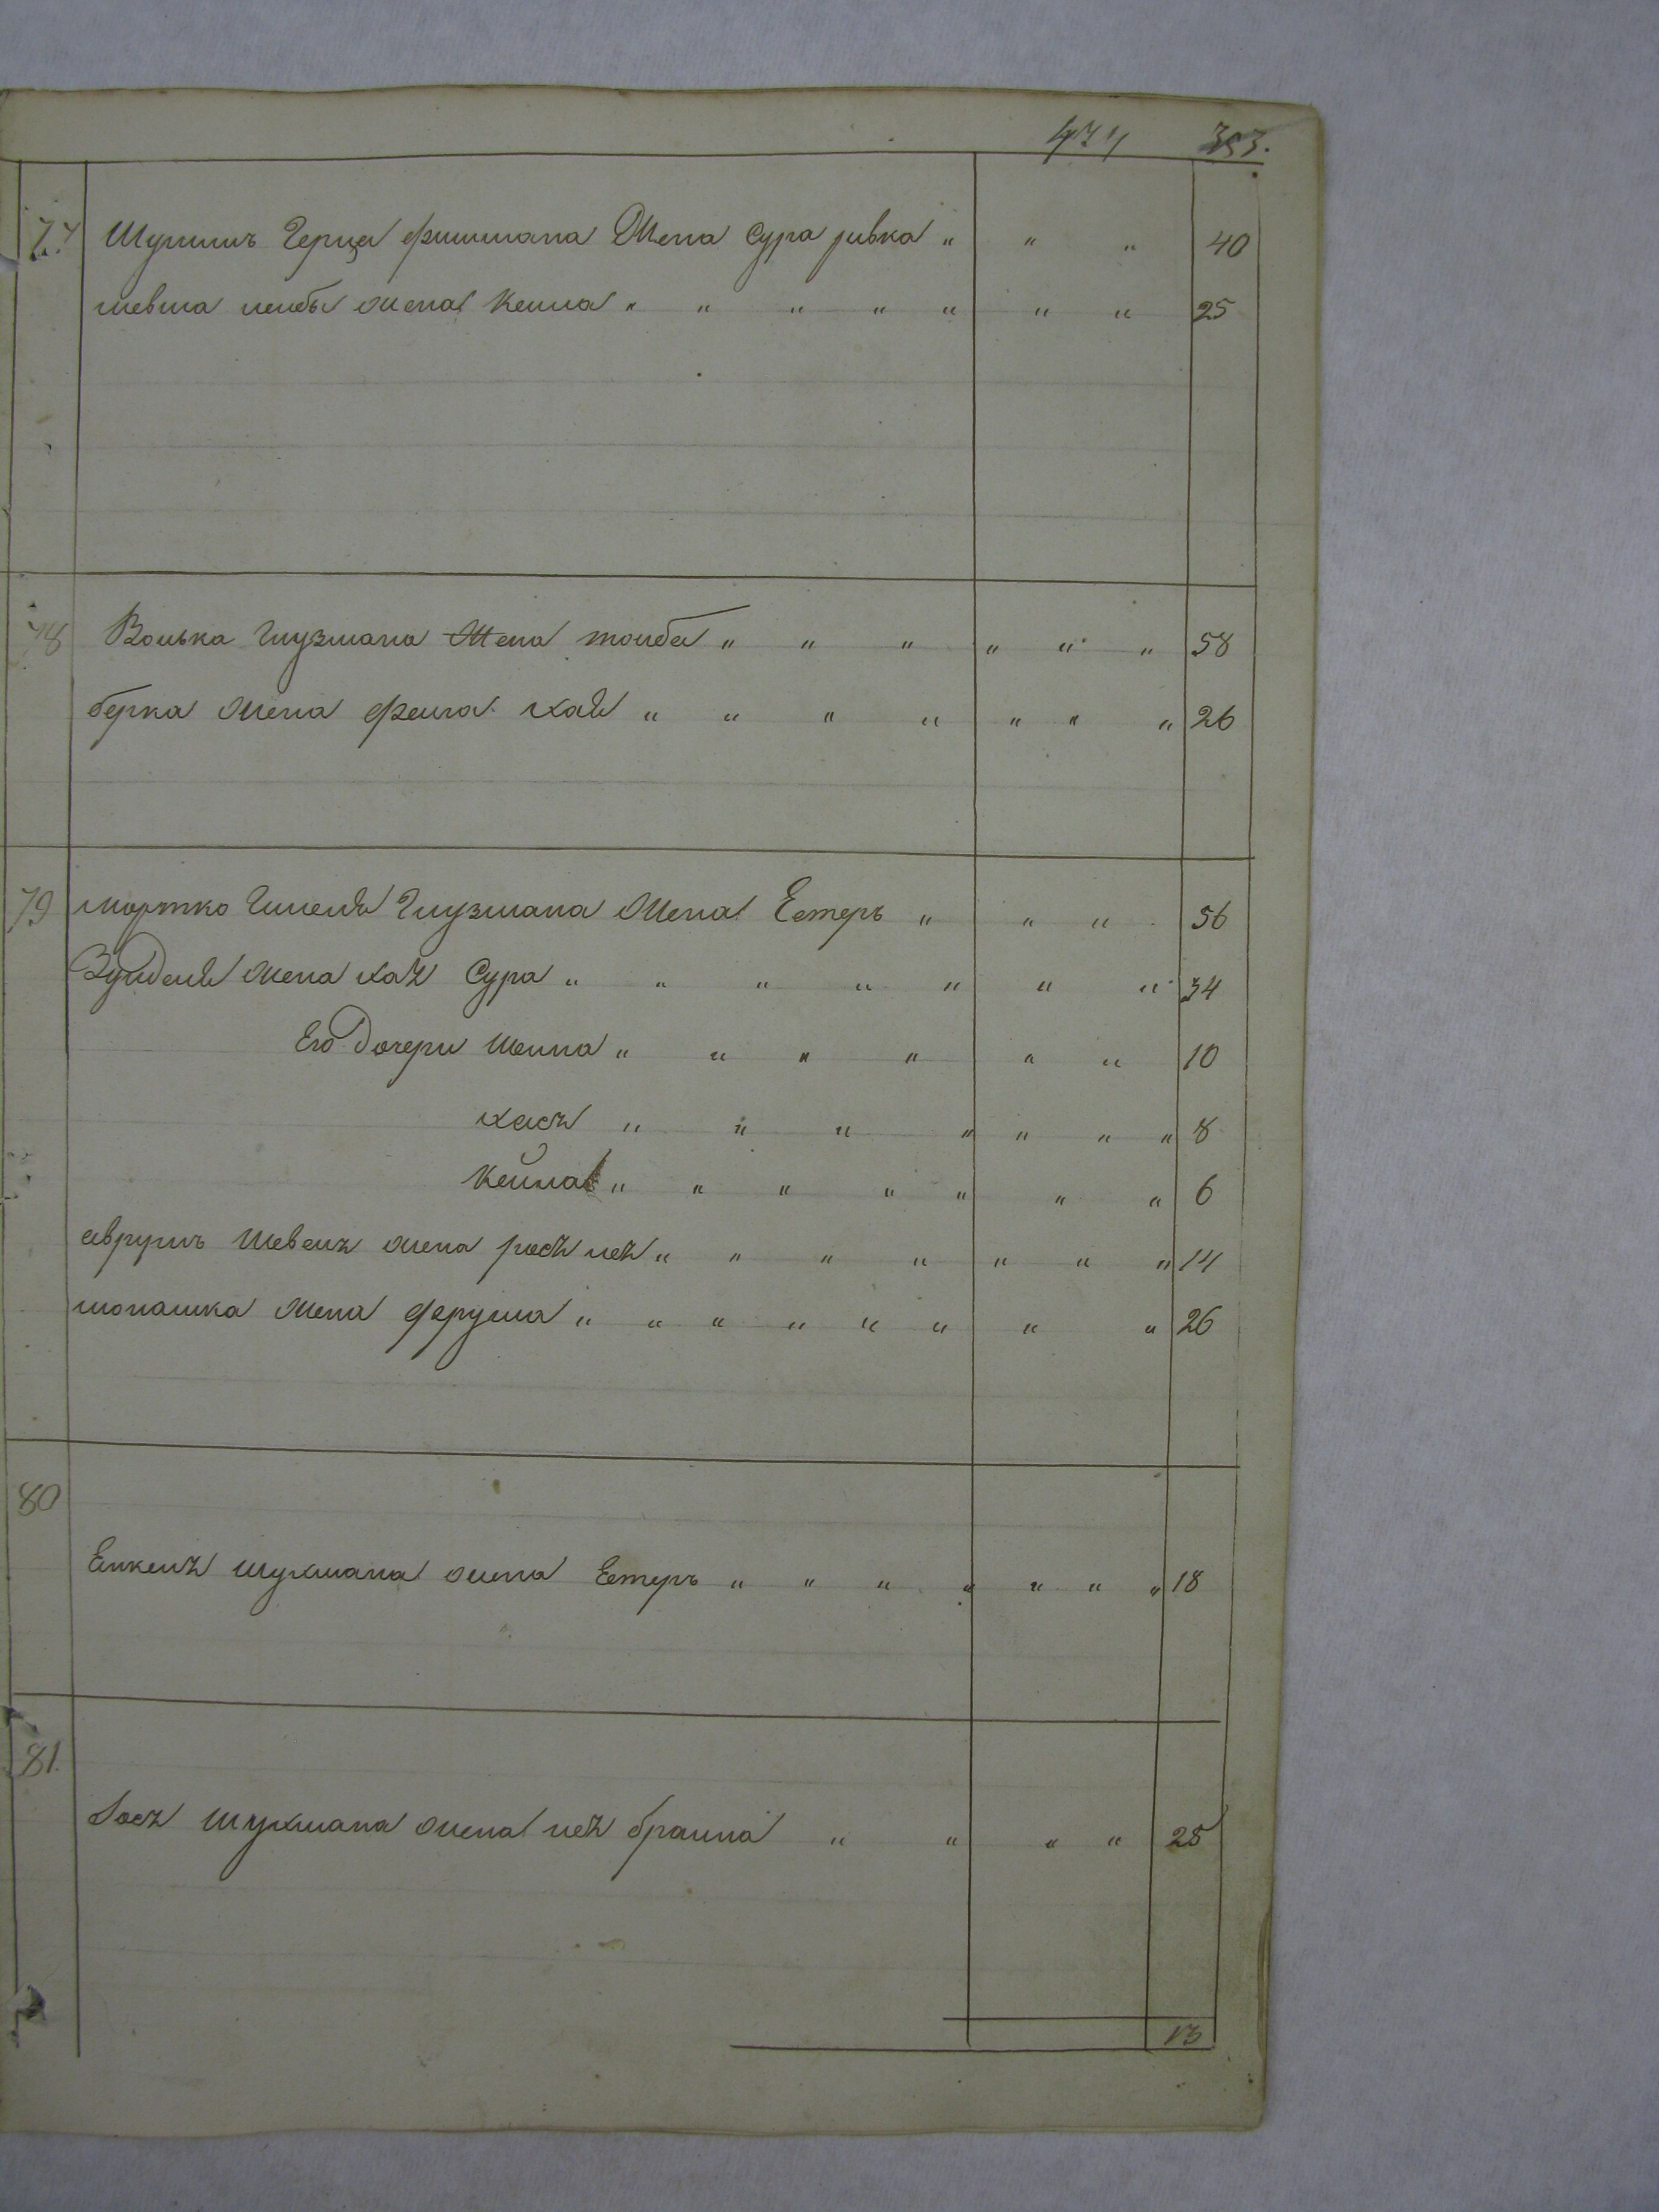 474 353.
77 Шулимъ Герца фишмана Жена Сура ривка " " " 40
жена Кейла " " " " " " " 25
78 Волька Глузмана Жена тоуба " " " " " " 58
берка жена фейга хая " " " " " " " 26
79 мортко Глузмана жена Естеръ " " " 56
Зунделя жена хая Сура " " " " " " " 34
Его Дочери Шейна " " " " " " 10
хася " " " " " " " 8
Кейла " " " " " " " 6
аврумъ жена рося лея " " " " " " " 14
монашка жена фрума " " " " " " " " 26
80
Енкеля шухмана жена Естеръ " " " " " " " 18
81.
Іося шухмана жена лея браина " " " " 25
13